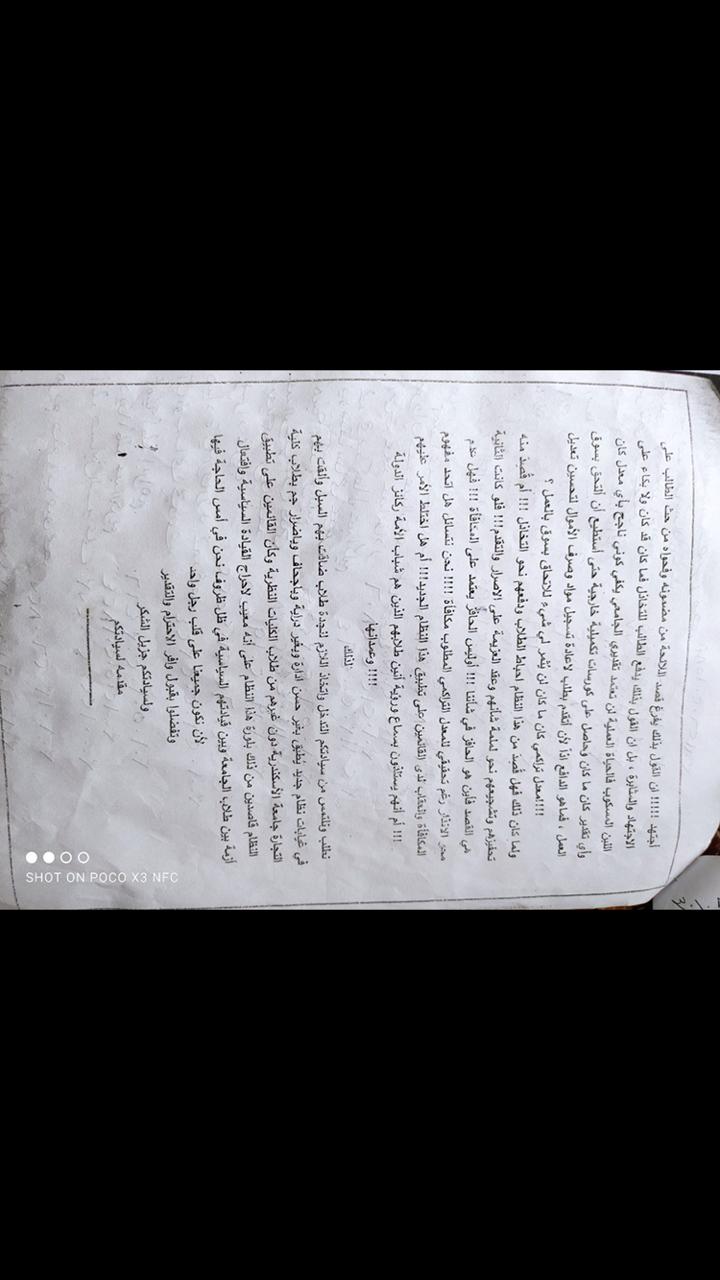 أجتهد !!!!! ان القول بذلك يفرغ قصد اللائحة من مضمونه وفحواه من حث الطالب على
الاجتهاد والمثابرة ، بل ان القول بذلك يدفع الطالب للتخاذل فما كان قد كان ولا بكاء على
اللبن المسكوب فالحياة العملية لن تعتمد تقديري الجامعي يكفي كوني ناجح بأي معدل كان
وأي تقدير كان ما كان وحاصل على كورسات تكميلية خارجية حتى أستطيع أن ألتحق بسوق
العمل ، فماهو الدافع اذاً لأن أتقدم بطلب لاعادة تسجيل مواد وصرف الأموال لتحسين تعديل
!!!!معدل تراكمي كان ما كان لن يُثمر لي شيء للالتحاق بسوق بالعمل ؟
ولما كان ذلك فهل قُصِدَ من هذا النظام احباط الطلاب ودفعهم نحو التخاذل !!! أم قُصِدَ منه
تحفيزهم وتشجيعهم نحو لملمة شأنهم وعقد العزيمة على الاصرار والتقدم!!! فلو كانت الثانية
هي القصد فأين هو الحافز في شأننا !!! أوليس الحافز يعتمد على المكافأة !!! فهل عدم
محو الانذار رغم تحقيقي للمعدل التراكمي المطلوب مكافأة !!!! نحن نتسائل هل اتحد مفهوم
المكافأة والعقاب لدى القائمين على تطبيق هذا النظام الجديد!!! أم هل اختلط الأمر عليهم
!!! أم أنهم يستلذون بسماع ورؤية أنين طلابهم الذين هم شباب الأمة ركائز الدولة
!!!! وعمدانها
لذلك
نطلب ونلتمس من سيادتكم التدخل واتخاذ اللازم لنجدة طلاب ضاقت بهم السبل وألقت بهم
في غيابات نظام جديد يُطبق بغير حسن ادارة وبغير دراية وبأجحاف وباضرار جم بطلاب كلية
التجارة جامعة الأسكندرية دون غيرهم من طلاب الكليات النظرية وكأن القائمين على تطبيق
النظام قاصدين من ذلك بلورة هذا النظام على أنه معيب لاحراج القيادة السياسية وافتعال
أزمة بين طلاب الجامعة وبين قيادتهم السياسية في ظل ظروف نحن في أمس الحاجة فيها
لأن نكون جميعنا على قلب رجل واحد
وتفضلوا بقبول وافر الاحترام والتقدير
ولسيادتكم جزيل الشكر
مقدمه لسيادتكم
SHOT ON POCO X3 NFC